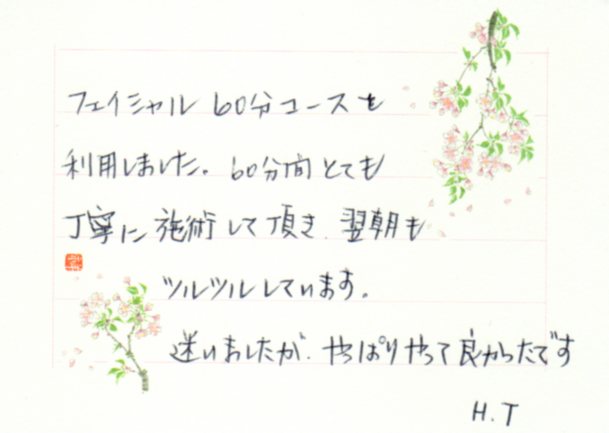 フェイシャル 60分コースを
利用しました。60分間とても
丁寧に施術して頂き、翌朝も
ツルツルしています。
迷いましたが、やっぱりやって良かったです
H.T